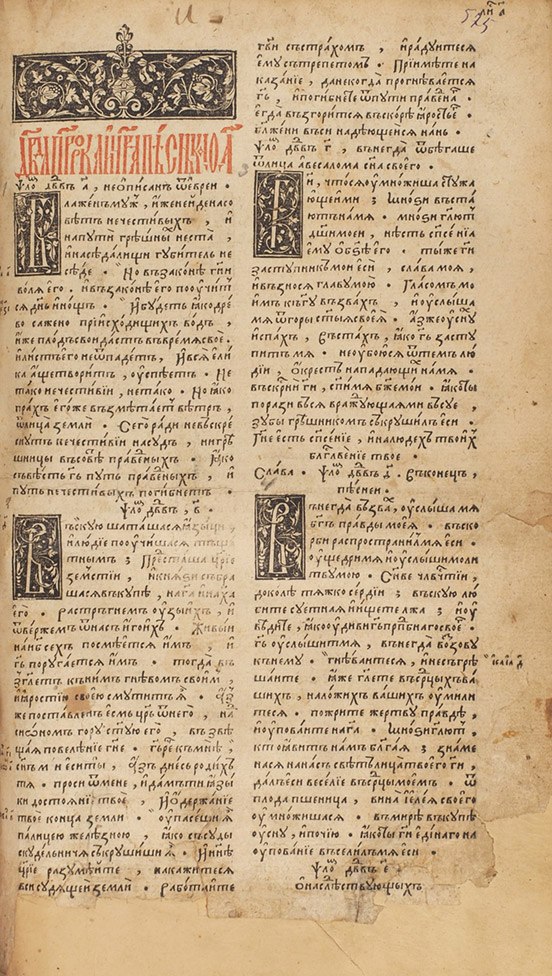 525
Дв҃да прⷪ҇рока и цр҃ѧ пѣсни, числоⷨ р҃н҃а
Ѱаⷧ҇ дв҃дꙋ а҃, неѡписанъ ѿ еврей.
Блаженъ мꙋжъ, иже не иде на со
вѣтъ нечестивыхъ, и
на пꙋти грѣшныⷯ не ста,
и на сѣдалищи гꙋбитель не
сѣде. Но въ законѣ гн҃и
волѧ его. и въ законѣ его поꙋчит
сѧ дн҃ь и нощь. И бꙋдеть ꙗко дре
во сажено при исходищихъ водъ,
иже плодъ свой дастъ въ времѧ свое.
и листъ его не ѿпадетъ, и всѧ ели
ка аще творитъ, ꙋспѣетъ. Не
тако нечестивїи, не тако. Но ꙗко
прахъ егоже възмѣтаетъ вѣтръ,
ѿ лица земли. Сего ради не въскре
снꙋтъ нечестивїи на сꙋдъ, ни грѣ
шницы въ совѣтъ праведныхъ. Ꙗко
съвѣсть гь҃ пꙋть праведныхъ, и
пꙋть нечестивыхъ погибнетъ.
Ѱаⷧ҇ дв҃дꙋ, в҃.
Въскꙋю шаташасѧ ꙗзыци,
и людїе поꙋчишасѧ тще
тнымъ; Предсташа цр҃їе
земстїи, и кнѧзи събра
шасѧ въкꙋпѣ, на га҃ и на ха҃
его. расторгнемъ ꙋзы ихъ, и
ѿвержемъ ѿ насъ иго ихъ. Живый
на нбс҃ехъ посмѣетсѧ имъ, и
гь҃ порꙋгаетсѧ имъ. тогда въ
зг҃летъ къ нимъ гнѣвомъ своимъ,
и ꙗростїю своею смꙋтитъ ѧ. Азъ
же поставленъ есмь цр҃ь ѿ него, на
сиѡномъ горꙋ ст҃ꙋю его, възвѣ
щаѧ повеленїе гн҃е. гь҃ рече къ мнѣ,
сн҃ъ мой еси ты, азъ днесь родихъ
тѧ. проси ѿ мене, и дамъ ти ꙗзы
ки достоѧнїе твое, И ѡдержанїе
твое конца земли. ꙋпасеши ѧ
палицею желѣзною, ꙗко съсꙋды
скꙋдельничѧ съкрꙋшиши ѧ. И нн҃ѣ
цр҃їе разꙋмѣйте, накажитесѧ
вси сꙋдѧщеи земли. Работайте
гв҃и съ страхомъ, и радꙋитесѧ
емꙋ съ трепетомъ. Прїимѣте на
казанїе, да не когда прогнѣваетсѧ
гь҃, и погибнете ѿ пꙋти праведна.
егда възгоритсѧ въскорѣ ꙗрость е.
блажени вьси надѣющеисѧ на нь.
Ѱаⷧ҇ дв҃дꙋ г҃, вънегда ѿбѣгаше
ѿ лица авесалома сн҃а своего.
Ги҃, что сѧ ꙋмножиша стꙋжа
ющеи ми; мнози въста
ють на мѧ. мнози гл҃ютъ
дш҃и моеи, нѣсть спс҃енїа
емꙋ ѡ бз҃ѣ его. ты же ги҃
застꙋпникъ мой еси, слава моѧ,
и възносѧ главꙋ мою. Гласомъ мо
имъ къ гꙋ҃ възвахъ, и ꙋслыша
мѧ ѿ горы ст҃ыѧ своеѧ. Азъ же ꙋснꙋ
и спахъ, въстахъ, ꙗко гь҃ застꙋ
питъ мѧ. не ꙋбоюсѧ ѿ темъ лю
дїи, ѡкрестъ нападающиⷯ на мѧ.
въскр҃сни ги҃, спс҃и мѧ бж҃е мой. ꙗко ты
порази всѧ враждꙋющаѧ ми въсꙋе,
зꙋбы грѣшникомъ съкрꙋшилъ еси.
Гн҃е есть спс҃енїе, и на людехъ твоихъ
блг҃венїе твое.
Слава. Ѱаⷧ҇ дв҃дꙋ д҃. въ конецъ,
пѣсней.
Вънегда възваⷯ, ꙋслыша мѧ
бг҃ъ правды моеѧ. въ ско
рби распространилъ мѧ еси.
ꙋщедри мѧ и ꙋслыши моли
твꙋ мою. Сн҃ве члв҃чтїи,
доколѣ тѧжкосердїи; въскꙋю лю
бите сꙋетнаѧ и ищете лжа; и ꙋ
вѣдите, ꙗко ꙋдиви гь҃ прпⷣбнаго своего.
гь҃ ꙋслышитъ мѧ, вънегда възовꙋ
къ немꙋ. гнѣваитесѧ, и несъгрѣ
шаите. ꙗже гл҃ете въ срⷣцыхъ ва
шихъ, на ложихъ вашихъ ꙋмили
тесѧ. пожрите жертвꙋ правдѣ,
и ꙋповаите на га҃. мнози гл҃ютъ,
кто ꙗвитъ намъ бл҃гаѧ; знаме
насѧ на насъ свѣтъ лица твоего ги҃,
далъ еси веселїе въ срⷣцы моемъ. ѿ
плода пшеница, вина и елеѧ своего
ꙋмножишасѧ. въ мирѣ въкꙋпѣ
ꙋснꙋ, и почїю. ꙗко ты ги҃ единаго на
ꙋпованїе въселилъ мѧ еси.
Ѱаⷧ҇ дв҃дꙋ е҃
ѡ наслѣствꙋющыхъ